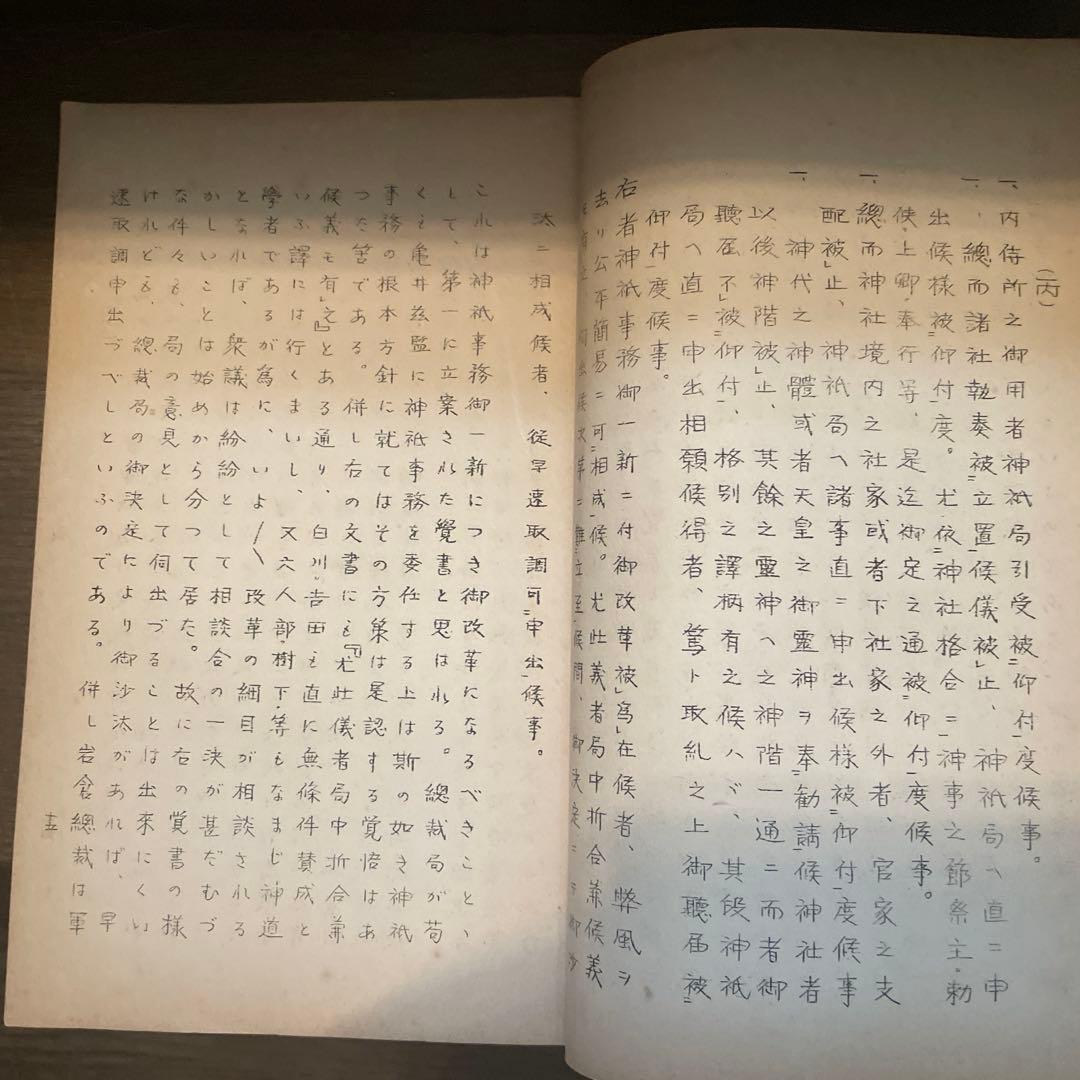 (丙)
一、内侍所之御用者神祇局引受被㆓仰付㆒度候事。
一、總而諸社執奏被㆓立置㆒候儀被㆑止、神祇局ヘ直ニ申
出候樣被㆓仰付㆒度。尤依㆓神社格合㆒ニ神事之節祭主・勅
使・上卿・奉行等、是迄御定之通被㆓仰付㆒度候事。
一、總而神社境内之社家或者下社家之外者、官家之支
配被㆑止、神祇局ヘ諸事直ニ申出候樣被㆓仰付㆒度候事
一、神代之神體或者天皇之御靈神ヲ奉㆓勸請㆒候神社者
以後神階被㆑止、其餘之靈神ヘ之神階一通ニ而者御
聽屆不㆑被㆓仰付㆒、格別之譯柄有之候ハヾ、其段神祇
局ヘ直ニ申出相願候得者、篤ト取糺之上御聽屆被㆓
御付㆒度候事。
右者神祇事務御一新ニ付御改革被㆑爲㆑在候者、弊風ヲ
去リ公平簡易ニ可㆓相成㆒候。尤此義者局中折合兼候義
汰ニ相成候者、從早速取調可㆓申出㆒候事。
これは神祇事務御一新につき御改革になるべきこと、
して、第一に立案された覺書と思はれる。總裁局が苟
くも亀井茲監に神祇事務を委任する上は斯の如き神祇
事務の根本方針に就てはその方策は是認する覚悟はあ
つた筈である。併し右の文書にも『尤此儀者局中折合兼
候義も有㆑之』とある通り、白川・吉田も直に無條件賛成と
いふ譯には行くまいし、又六人部・樹下等もなまじ神道
學者であるが爲に、いよ〳〵改革の細目が相談される
となれば、衆議は紛紛として相談合の一決が甚だむづ
かしいことは始めから分つて居た。故に右の覚書の樣
な件々も、局の意見として伺出づることは出來にくい
けれども、總裁局の御決定により御沙汰があれば、早
速取調申出づべしといふのである。併し岩倉總裁は軍